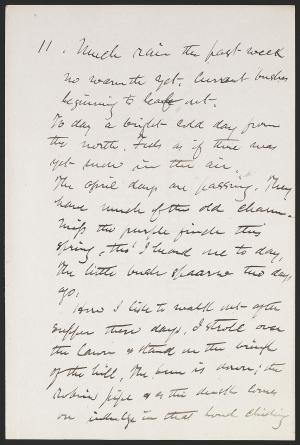 11. Much rain the past week
no warmth yet. Currant bushes
beginning to leaf out.
To day a bright cold day from
the north. Feels as if there was
yet snow in the air.
The april days are passing. They
have much of the old charm.
Miss the purple finch this
spring, tho' I heard one to day,
The little bush sparrow two days
ago.
How I like to walk out after
supper these days. I stroll over
the lawn & stand on the brink
of the hill. The sun is down; the
robins pipe & as the dusk comes
on indulge in that loud chiding